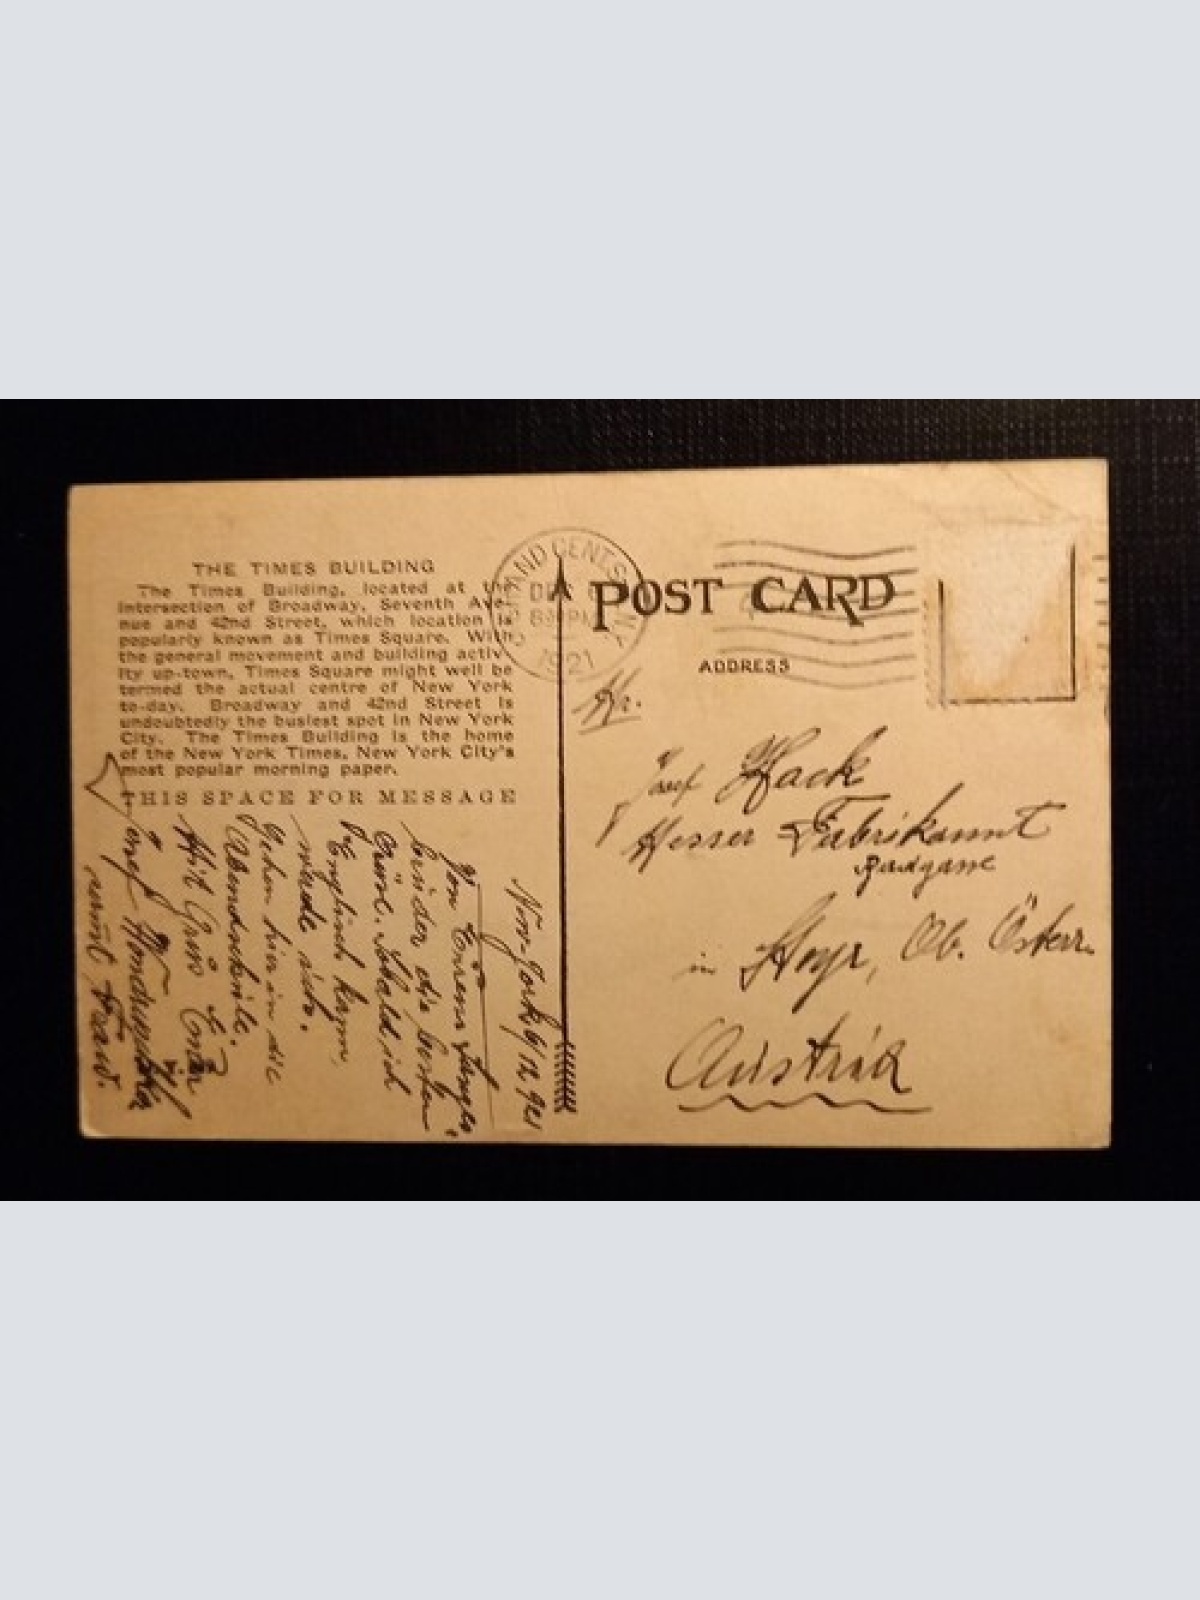 THE TIMES BUILDING
The Times Building, located at the
intersection of Broadway, Seventh Ave-
nue and 42nd Street, which location is
popularly known as Times Square. With
the general movement and building activ-
ity up-town, Times Square might well be
termed the actual centre of New York
to-day. Broadway and 42nd Street is
undoubtedly the busiest spot in New York
City. The Times Building is the home
of the New York Times, New York City's
most popular morning paper.
THIS SPACE FOR MESSAGE
GRAND CENT. STA. N.Y.
DEC
8 PM
1921
POST CARD
ADDRESS
Hr.
Josef Hack
Messer Fabrikannt
in Steyr, Ob. Österr.
Austria
New-York 6/12 921
Von Eurem
die besten
Grüße. Sobald ich
Englisch kann,
werde ich
gehen hier in die
Abendschule.
Mit Gruß
Josef